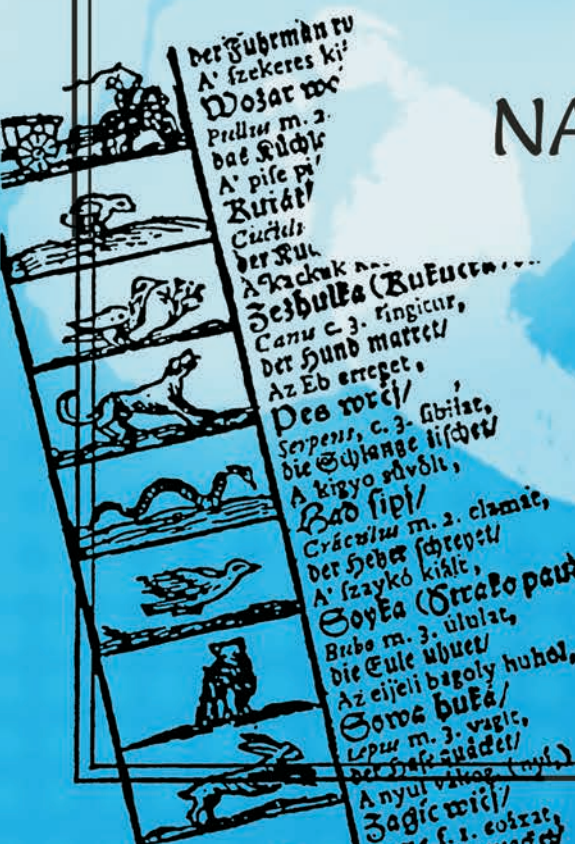 NA
der Fuhrman
A' szekeres
Wozar
Pullus m. 2.
das Küchle
A' pise
Kuřát
der
A' kackuk
Zezhulka (Kukuc
Canis c. 3. ringitur,
der Hund marret/
Az Eb erreget,
Pes wrčj/
Serpens, c. 3. sibilat,
die Schlange zischet/
A kigyo süvölt,
Had sipj/
Gráculus m. 2. clamat,
der Heher schreyet/
A' szaykó kiált,
Soyka (Strako
Bubo m. 3. ululat,
die Eule uhuet/
Az eijeli bagoly huhol,
Sowa huká/
Lepus m. 3. vagit,
der Hase quäcket/
A nyul
Zagjc
f. 1. coaxat,